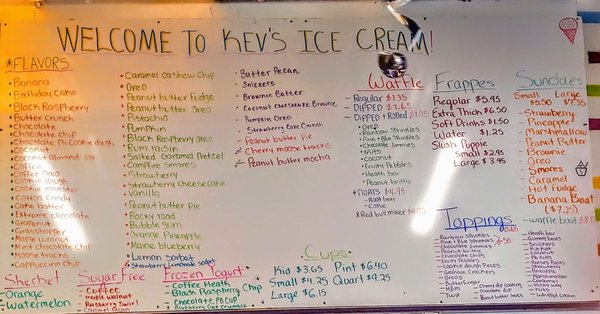 WELCOME TO KEV'S ICE CREAM!
*FLAVORS
Banana
Birthday cake
Black Raspberry
Butter Crunch
Chocolate
Chocolate chip
Chocolate PB Cookie dough
Coconut
Coconut almond Joy
Coffee
Coffee Oreo
Cookie dough
Cookie monster
Cotton candy
Cake batter
Extreme chocolate
Grapenut
Grasshopper
Maple walnut
Mint chocolate chip
Moose tracks
Cappuccino chip
Caramel cashew chip
Oreo
Peanut butter Fudge
Peanut butter Oreo
Pistachio
Pumpkin
Black Raspberry Oreo
Rum raisin
Salted Caramel Pretzel
Campfire Smores
Strawberry
Strawberry cheesecake
Vanilla
Peanut butter Pie
Rocky road
Bubble gum
Orange Pineapple
Maine blueberry
Lemon Sorbet
Strawberry Lemonade sorbet
Butter Pecan
Snickers
Brownie Batter
Coconut Cheesecake Brownie
Pumpkin Oreo
Strawberry Cake Crunch
Peanut butter Pie
Cherry moose tracks
Peanut butter mocha
Waffle
Regular $1.35
DIPPED
DIPPED + Rolled
Oreo
Rainbow Sprinkles
Pink + Blue Sprinkles
Chocolate Jimmies
NUTS
Coconut
Fruity Pebbles
Heath bar
Peanut brittle
*FLOATS $4.95
Root beer
Coke
*Red bull mixer $4.95
Frappes
Regular $5.95
Extra Thick $6.50
Soft Drinks $1.50
Water $1.25
Slush Puppie
Small $2.95
Large $3.95
Sundaes
Small Large
$7.35
Strawberry
Pineapple
Marshmallow
Peanut Butter
Brownie
Oreo
Smores
Caramel
Hot Fudge
Banana Boat
($7.25)
waffle boat
Toppings
Rainbow sprinkles
Pink + Blue Sprinkles
Chocolate Jimmies
Peanuts
Oreos
Chocolate chips
Fruity Pebbles
Cookie dough Pieces
Graham Crackers
Oreos
Butterfinger
M&M
Twix
Cherry dip coating
Chocolate dip
Peanut butter Sauce
Heath bar
Gummi bears
Snickers
Kit Kat
Coconut
PB Cups
Reese's Pieces
Strawberry
Pineapple
Marshmallow
Caramel
Hot Fudge
Walnuts
Whipped Cream
Cups
Kid $3.65 Pint $6.40
Small $4.25 Quart $9.25
Large $6.15
Sherbet
Orange
Watermelon
Sugar Free
Coffee
maple walnut
Raspberry Swirl
Caramel Pecan
Frozen Yogurt
Coffee Heath
Black Raspberry Chip
Chocolate PB Cup
Blueberry Oat Crumble